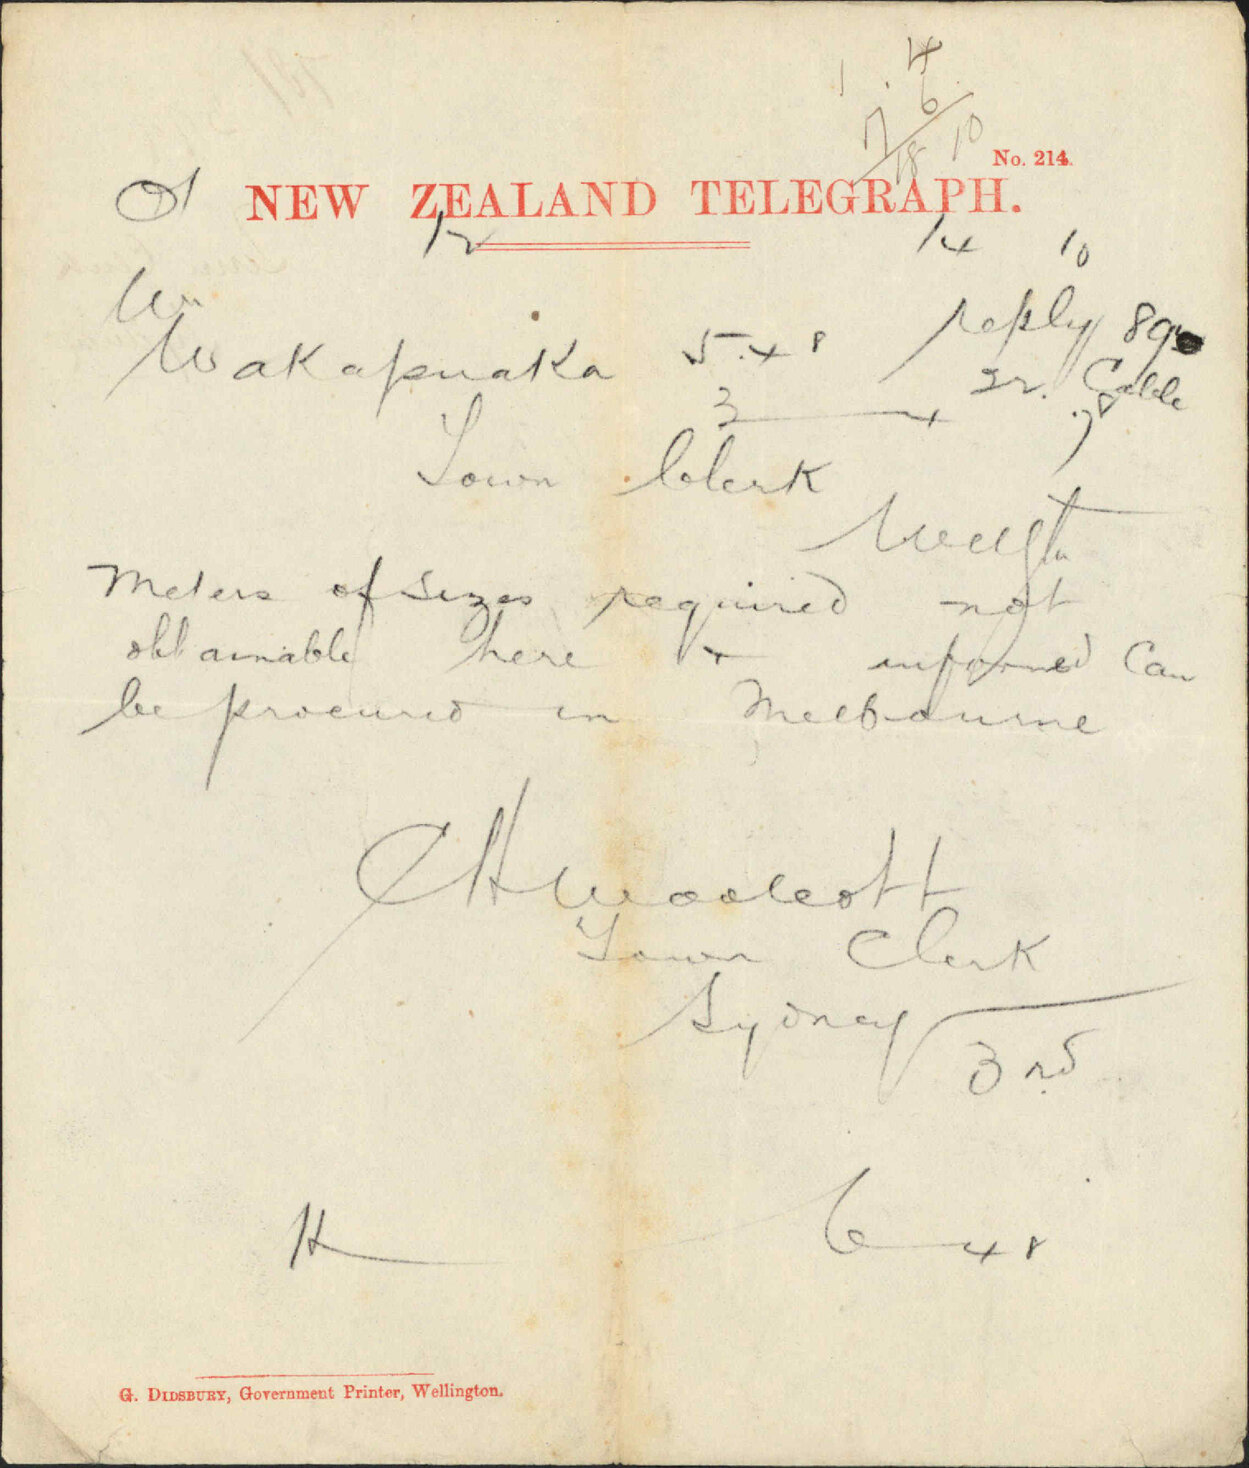 4
6
7 18 10
No. 214.
NEW ZEALAND TELEGRAPH.
12 14 10
Wn
Wakapuaka 5.48 reply 89
Cable
3
Town Clerk
Wellgtn
Meters of sizes required not
obtainable here & informed can
be procured in Melbourne
CH Woolcott
Town Clerk
Sydney
3rd
H 6 48
G. DIDSBURY, Government Printer, Wellington.